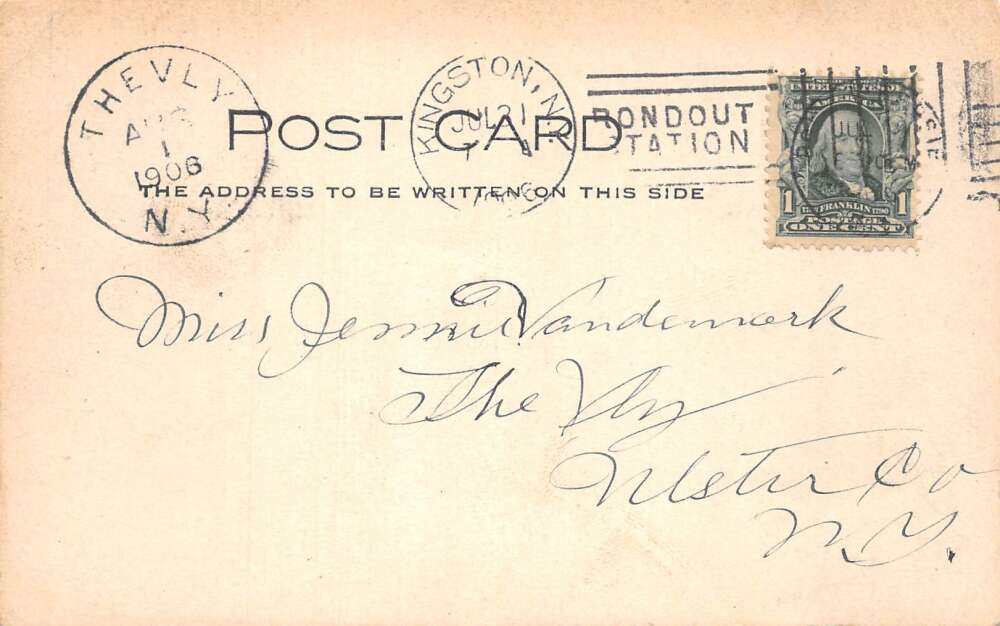 THEVLY
AUG
1
1906
N.Y.
KINGSTON, N.Y.
JUL 31
RONDOUT
STATION
POST CARD
THE ADDRESS TO BE WRITTEN ON THIS SIDE
UNITED STATES OF
AMERICA
JUL
1
FRANKLIN
1
POSTAGE
ONE CENT
Miss Jennie Vandemark
The Vly
Ulster Co
N.Y.